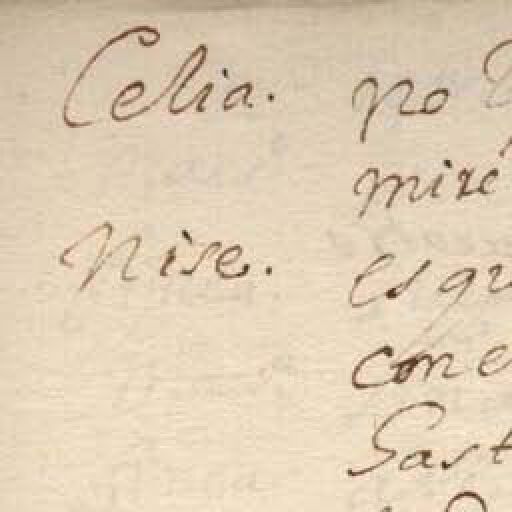 Celia. no
mire
Nise. es
con
Gast